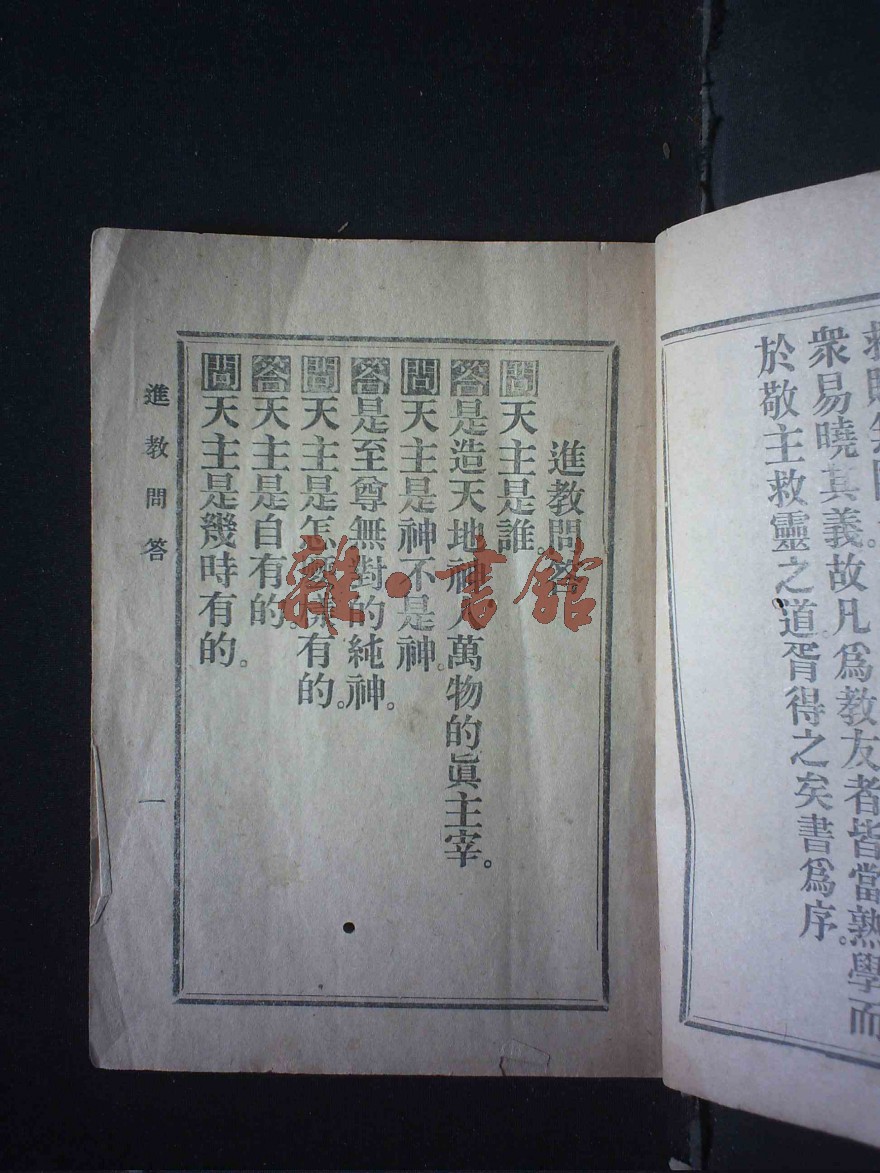 衆易曉其義。故凡爲教友者皆當熟學。而
於敬主救靈之道。胥得之矣。書爲序。
進教問答
問天主是誰。
答是造天地神人萬物的眞主宰。
問天主是神不是神。
答是至尊無對的純神。
問天主是怎麽樣有的。
答天主是自有的。
問天主是幾時有的。
進教問答
一
雜·書館